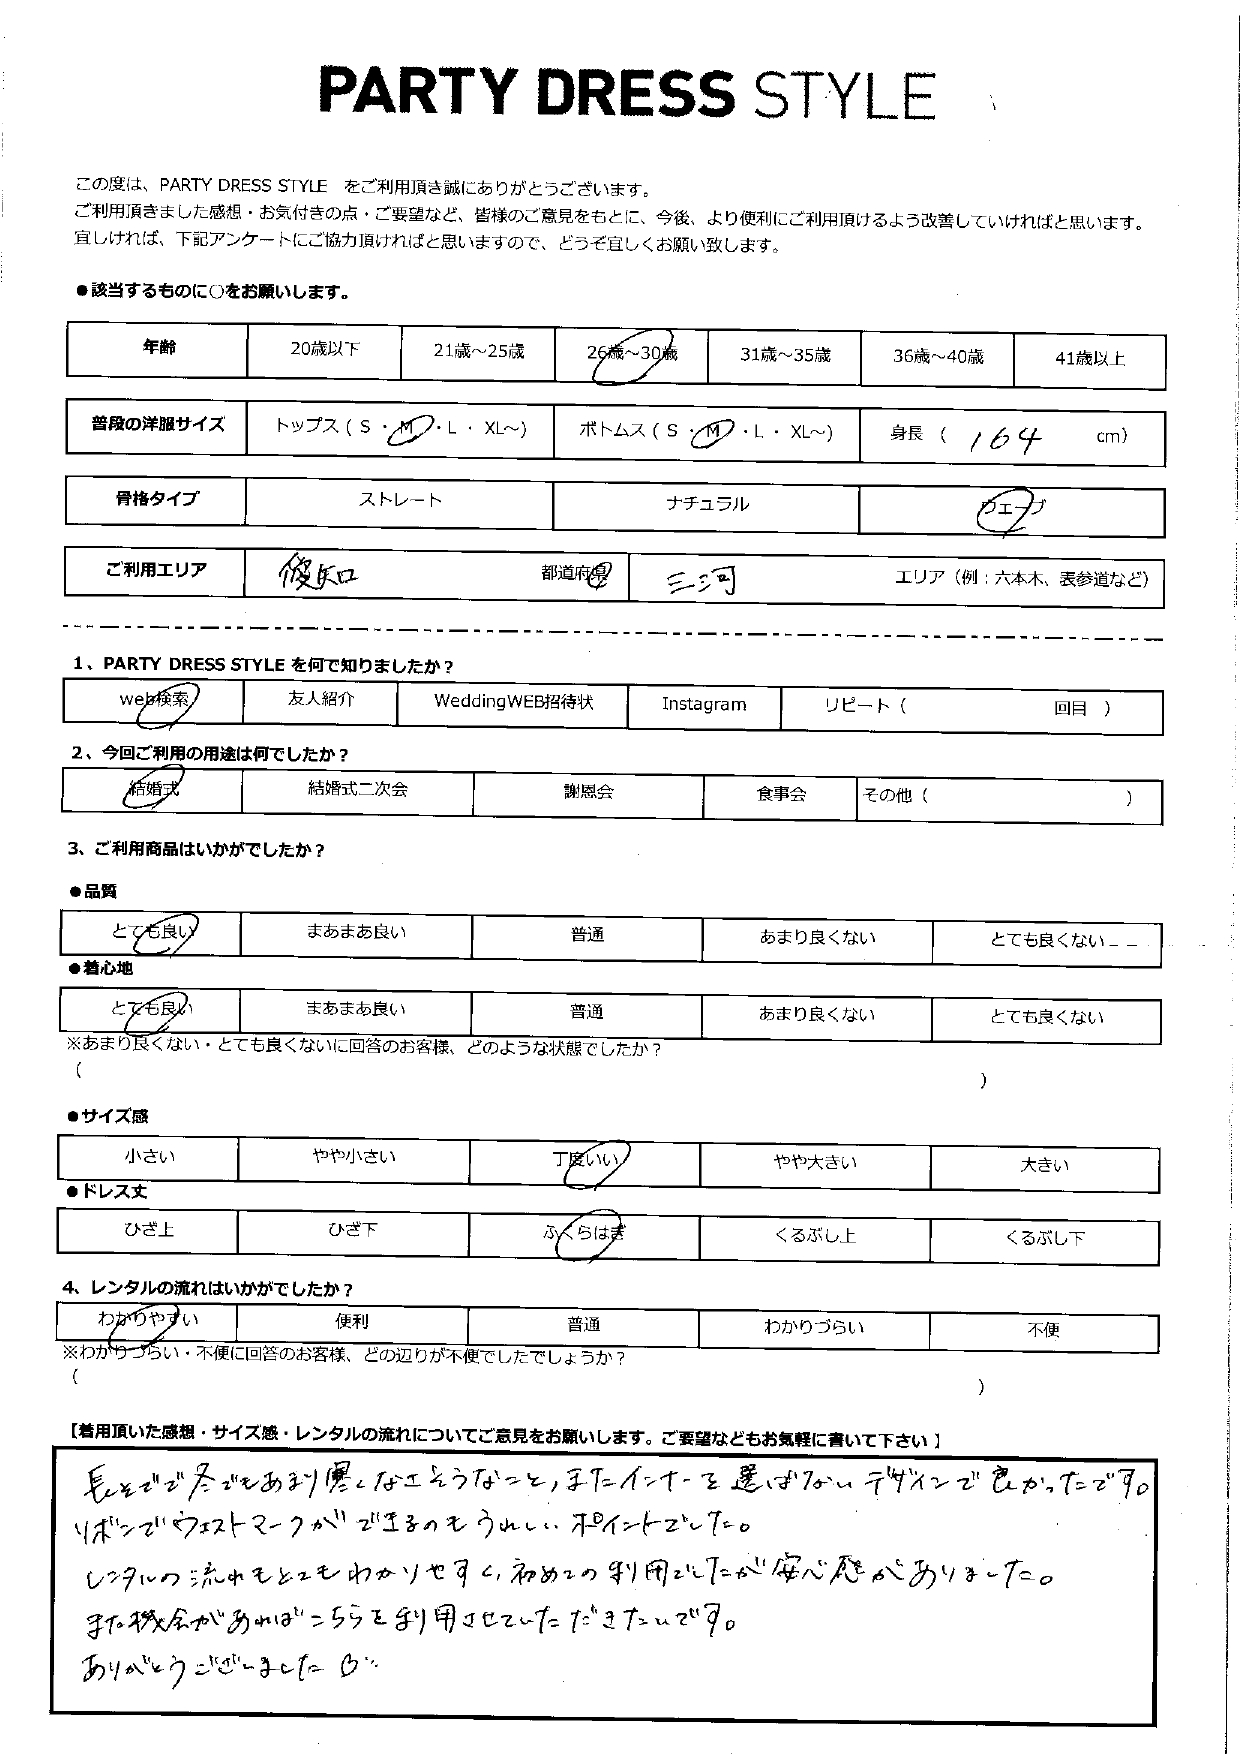 PARTY DRESS STYLE
この度は、PARTY DRESS STYLE をご利用頂き誠にありがとうございます。
ご利用頂きました感想・お気付きの点・ご要望など、皆様のご意見をもとに、今後、より便利にご利用頂けるよう改善していければと思います。
宜しければ、下記アンケートにご協力頂ければと思いますので、どうぞ宜しくお願い致します。
●該当するものに○をお願いします。
年齢 20歳以下 21歳～25歳 26歳～30歳 31歳～35歳 36歳～40歳 41歳以上
普段の洋服サイズ トップス ( S ・ M ・ L ・ XL～) ボトムス ( S ・ M ・ L ・ XL～) 身長 ( 164 cm)
骨格タイプ ストレート ナチュラル ウェーブ
ご利用エリア 愛知 都道府県 三河 エリア（例：六本木、表参道など）
1、PARTY DRESS STYLE を何で知りましたか？
web検索 友人紹介 WeddingWEB招待状 Instagram リピート ( 回目 )
2、今回ご利用の用途は何でしたか？
結婚式 結婚式二次会 謝恩会 食事会 その他 ( )
3、ご利用商品はいかがでしたか？
●品質
とても良い まあまあ良い 普通 あまり良くない とても良くない
●着心地
とても良い まあまあ良い 普通 あまり良くない とても良くない
※あまり良くない・とても良くないに回答のお客様、どのような状態でしたか？
( )
●サイズ感
小さい やや小さい 丁度いい やや大きい 大きい
●ドレス丈
ひざ上 ひざ下 ふくらはぎ くるぶし上 くるぶし下
4、レンタルの流れはいかがでしたか？
わかりやすい 便利 普通 わかりづらい 不便
※わかりづらい・不便に回答のお客様、どの辺りが不便でしたでしょうか？
( )
【着用頂いた感想・サイズ感・レンタルの流れについてご意見をお願いします。ご要望などもお気軽に書いて下さい】
長そでで冬でもあまり寒くなさそうなこと,またインナーを選ばないデザインで良かったです。
リボンでウエストマークができるのもうれしいポイントでした。
レンタルの流れもとてもわかりやすく,初めての利用でしたが安心感がありました。
また機会があればこちらを利用させていただきたいです。
ありがとうございました